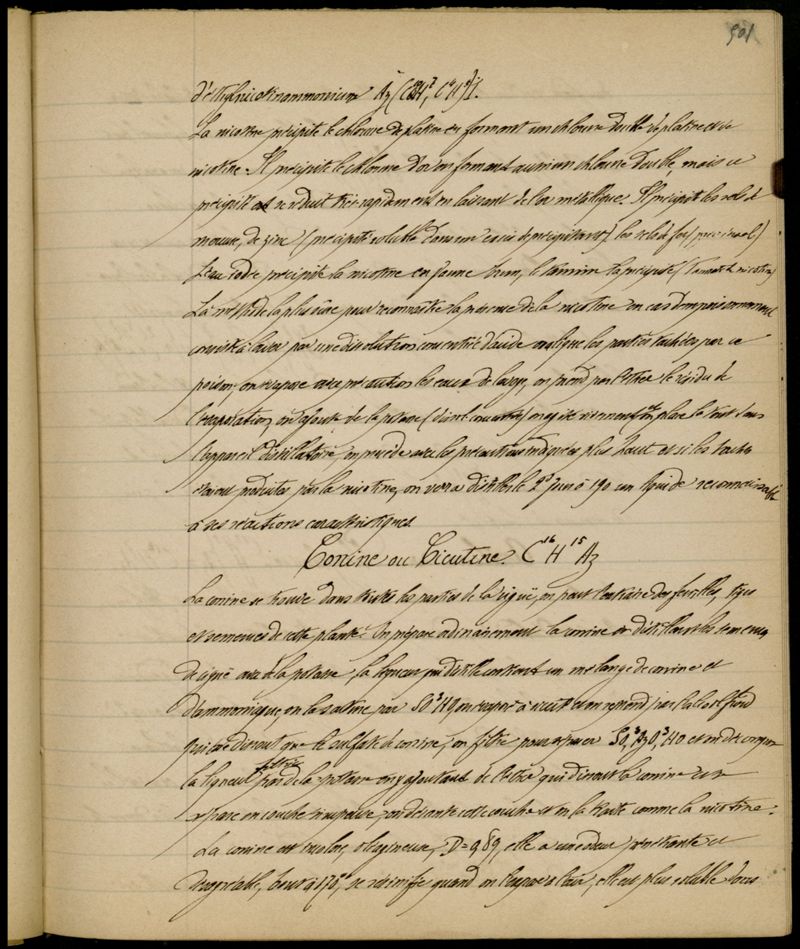 501
d'éthylnicotinammonium Az (C H , C H ) I.
La nicotine précipite le chlorure de platine en formant un chlorure double de platine et de
nicotine. Il précipite le chlorure d'or en formant aussi un chlorure double, mais ce
précipité se réduit très rapidement en laissant de l'or métallique. Il précipite les sels de
mercure, de zinc (précipité soluble dans un excès de précipitant) les sels de fer
L'eau iodée précipite la nicotine en jaune brun, le tannin la précipite
La méthode la plus sûre pour reconnaître la présence de la nicotine en cas d'empoisonnement
consiste à laver par une dissolution concentrée d'acide oxalique les parties tachées par ce
poison, on évapore avec précaution les eaux de lavage, on prend par l'éther le résidu de
l'évaporation, on ajoute de la potasse on agite vivement on place le tout dans
l'appareil distillatoire, on procède avec les précautions indiquées plus haut et si les taches
étaient produites par la nicotine, on verra distiller à 190 un liquide reconnaissable
à ses réactions caractéristiques
Conine ou Cicutine. C16 H15 Az
La conine se trouve dans toutes les parties de la ciguë, on peut l'extraire des feuilles, tiges
et semences de cette plante. On prépare ordinairement la conine en distillant les semences
de ciguë avec de la potasse, la liqueur qui distille contient un mélange de conine et
d'ammoniaque, on la sature par SO3HO, on évapore à siccité et on reprend par l'alcool froid
qui ne dissout que le sulfate de conine, on filtre pour séparer SO3, AzO3HO et on décompose
la liqueur filtrée par de la potasse en y ajoutant de l'éther qui dissout la conine et se
sépare en couche on décante cette couche et on la traite comme la nicotine.
La conine est incolore, oléagineuse, D = 0,89, elle a une odeur pénétrante et
désagréable, bout à 170°, se résinifie quand on l'expose à l'air, elle est plus soluble dans